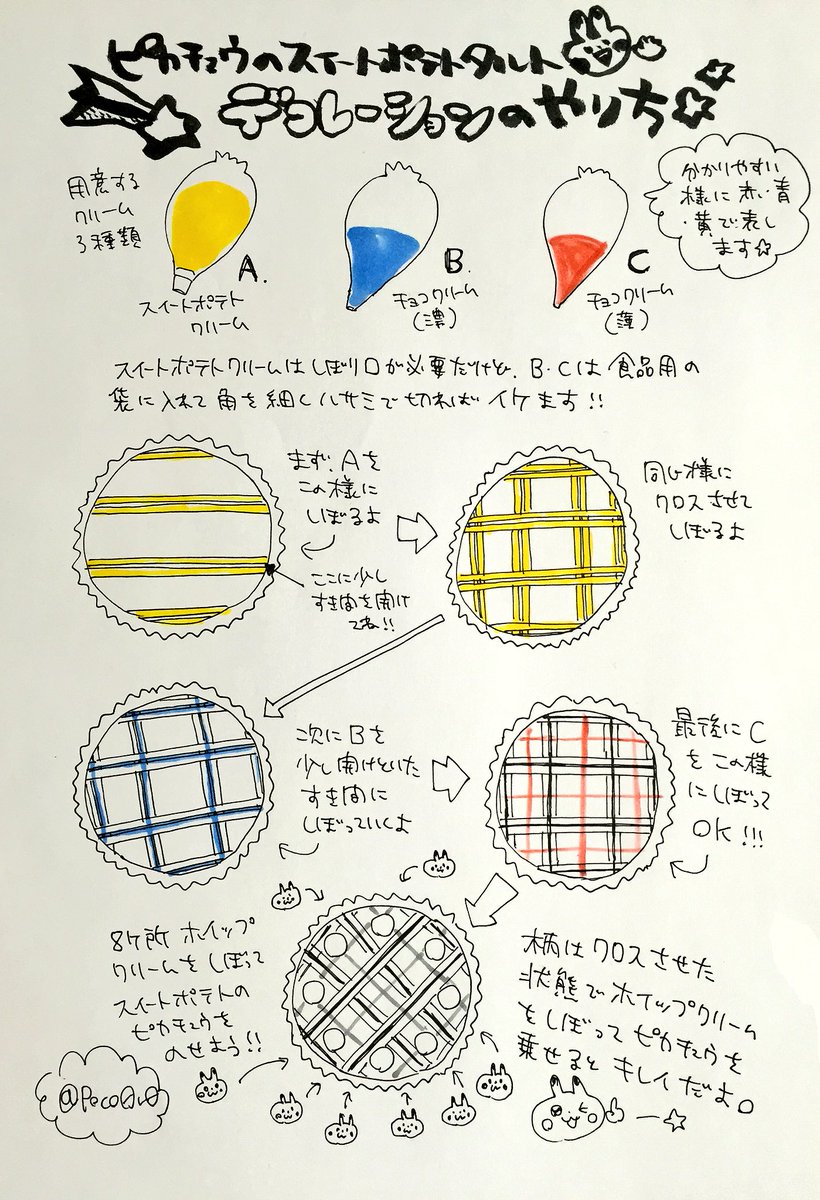 ピカチュウのスイートポテトタルト
デコレーションのやり方
用意する
クリーム
3種類
A.
スイートポテト
クリーム
B.
チョコクリーム
(濃)
C
チョコクリーム
(薄)
分かりやすい
様に赤・青
・黄で表し
ます☆
スイートポテトクリームはしぼり口が必要だけど、B・Cは食品用の
袋に入れて角を細くハサミで切ればイケます!!
まず、Aを
この様に
しぼるよ
ここに少し
すき間を開け
てね!!
同じ様に
クロスさせて
しぼるよ
次にBを
少し開けといた
すき間に
しぼっていくよ
最後にC
をこの様
にしぼって
OK!!!
8ヶ所ホイップ
クリームをしぼって
スイートポテトの
ピカチュウを
のせまう!!
柄はクロスさせた
状態でホイップクリーム
をしぼってピカチュウを
乗せるとキレイだよ。